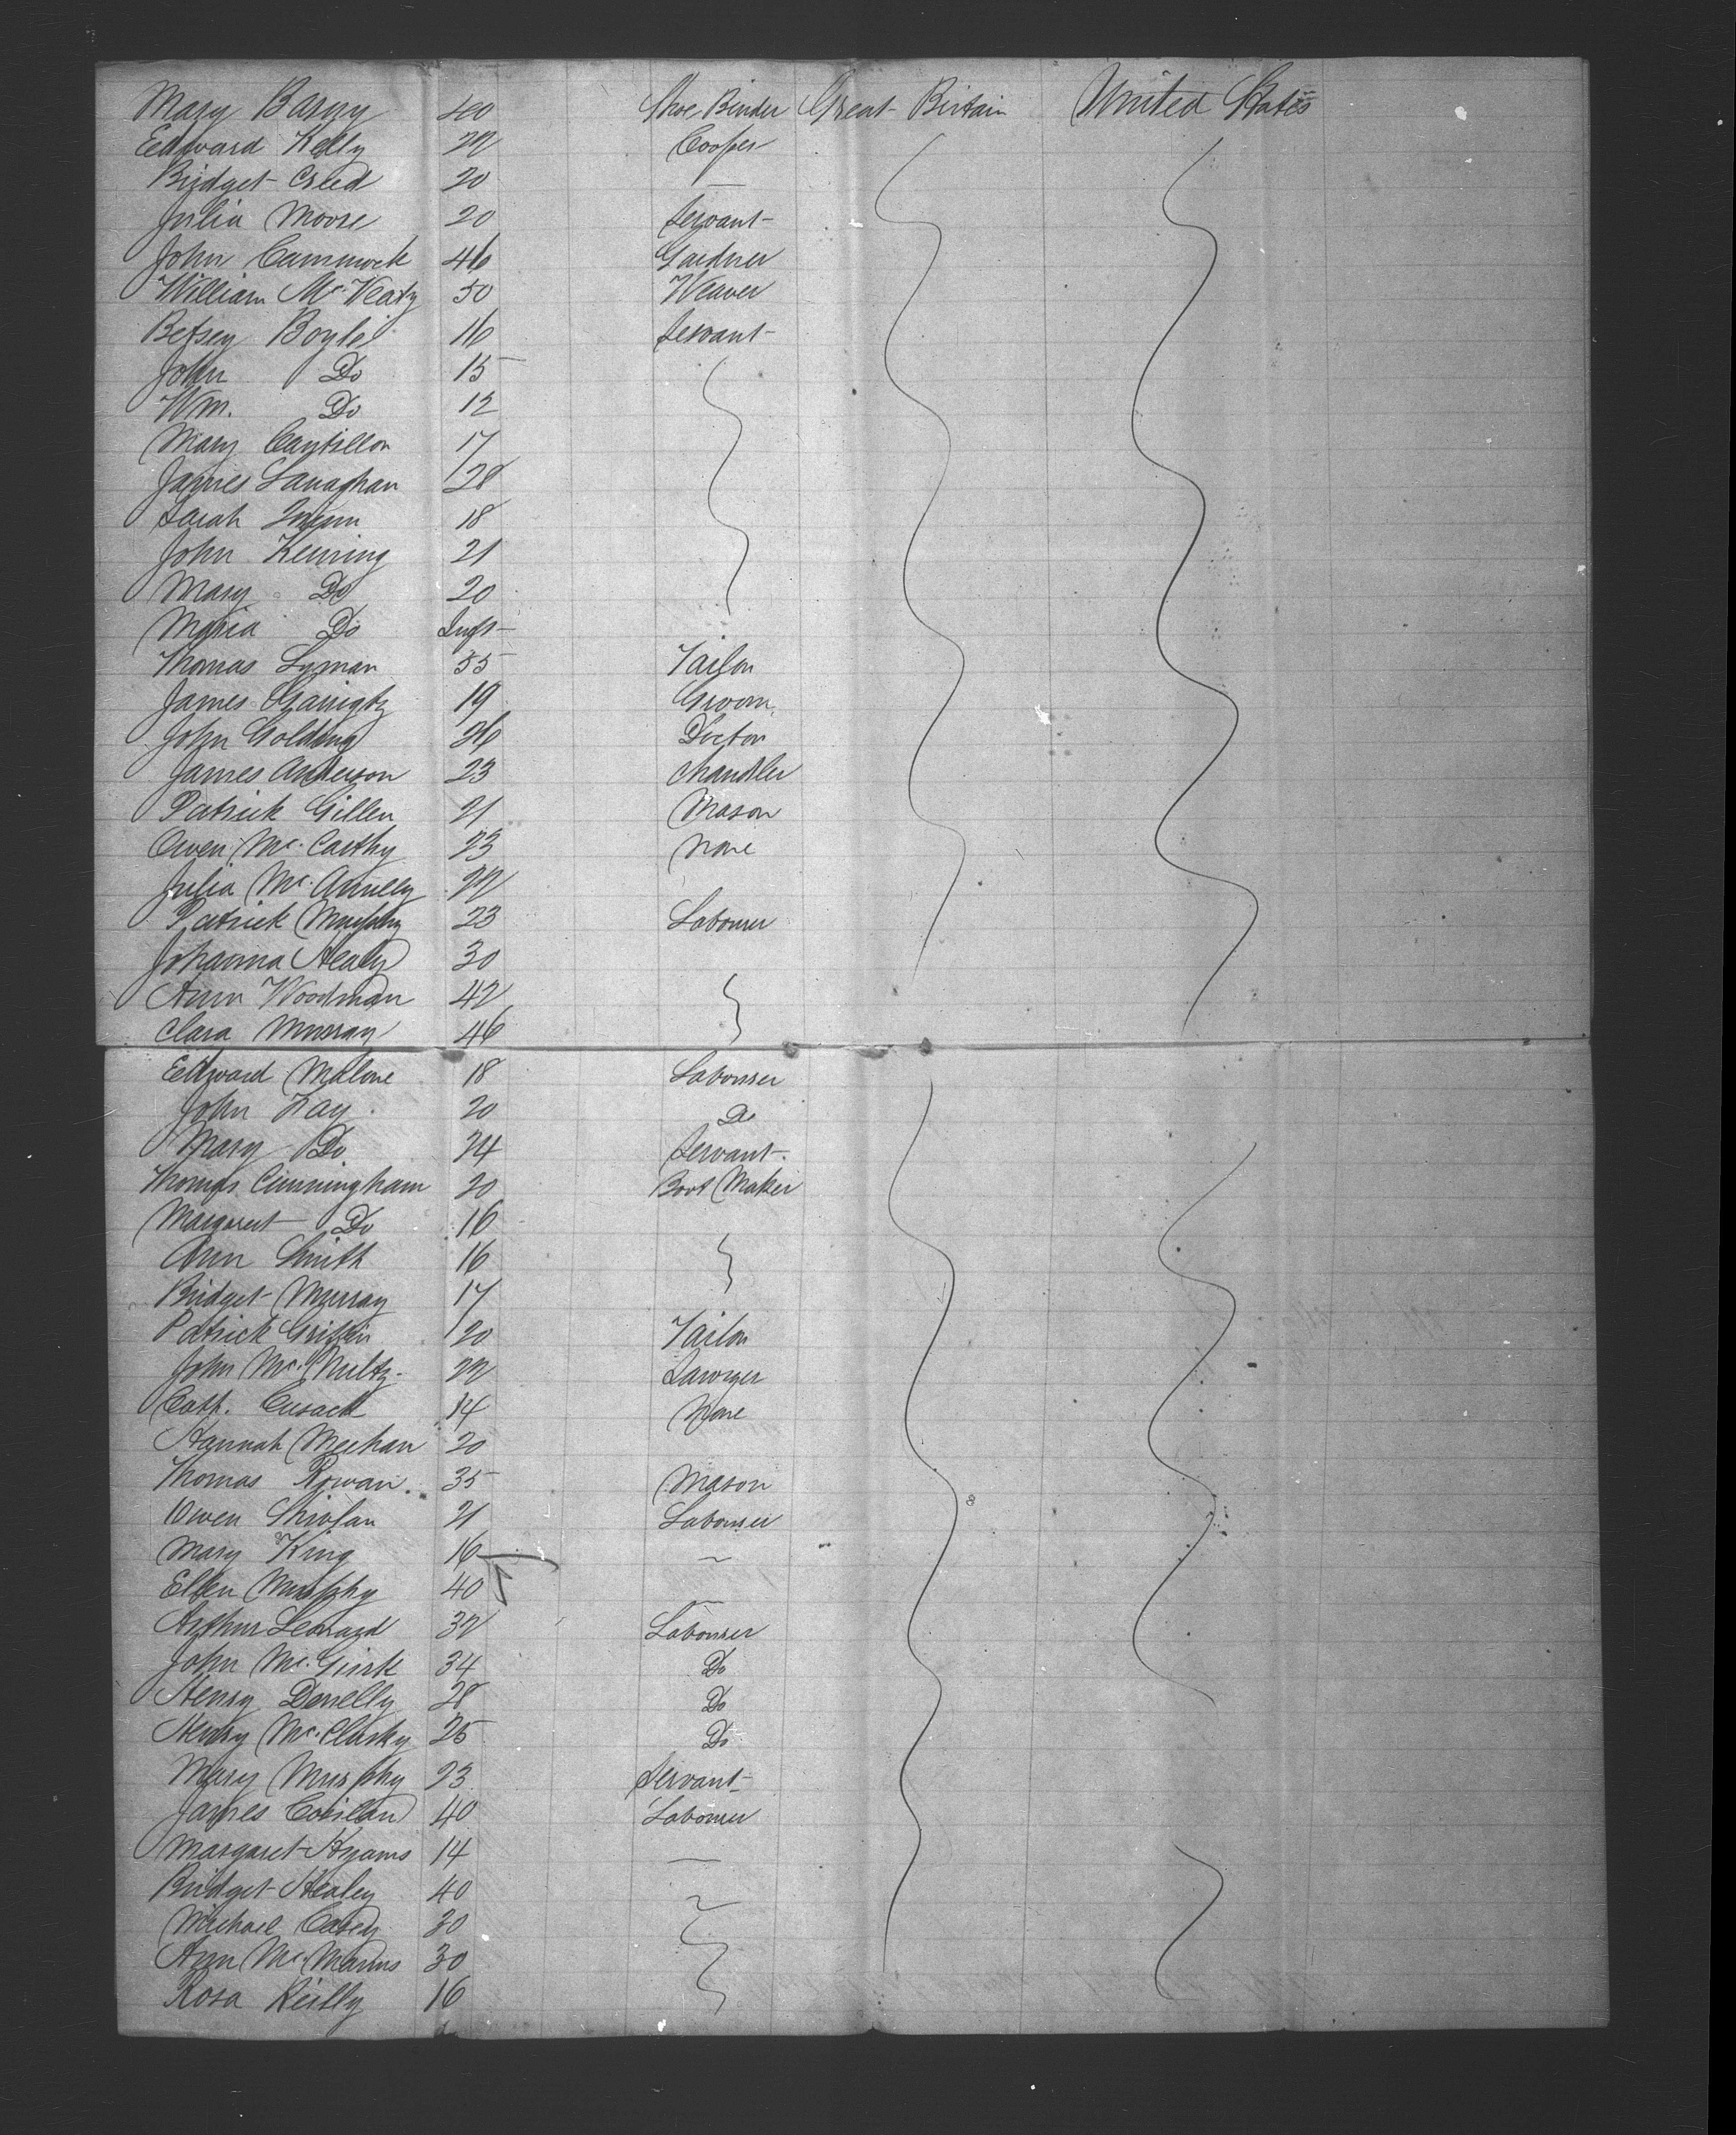 Mary Barry 40 Shoe Binder Great Britain United States
Edward Kelly 22 Cooper
Bridget Creed 20 —
Julia Moore 20 Servant
John Cammock 46 Gardner
William Mc 50 Weaver
Betsey Boyle 16 Servant
John Do 15
Wm. Do 12
Mary Cantillon 17
James Lanaghan 28
Sarah 18
John Kenning 21
Mary Do 20
Maria Do Inft
Thomas Lyman 35 Tailor
James Garrigty 19 Groom
John Golding 26 Doctor
James Anderson 23 Chandler
Patrick Gillen 21 Mason
Owen Mc. Carthy 23 None
Julia Mc. Anully 22
Patrick Murphy 23 Labourer
Johanna Healy 30
Ann Woodman 42
Clara Murray 46
Edward Malone 18 Labourer
John Fay 20 Do
Mary Do 24 Servant
Thomas Cunningham 20 Boot Maker
Margaret Do 16
Ann Smith 16
Bridget Murray 17
Patrick Griffin 20 Tailor
John Mc. Nulty 22 Lawyer
Cath. Cusack 14 None
Hannah Meehan 20
Thomas Rowan 35 Mason
Owen 21 Labourer
Mary King 16 —
Ellen Murphy 40 —
Arthur Leonard 32 Labourer
John Mc. Girk 34 Do
Henry Donelly 28 Do
Henry Mc. Clusky 25 Do
Mary Murphy 23 Servant
James 40 Labourer
Margaret Hyams 14 —
Bridget Healey 40
Michael Casey 30
Ann Mc. Manus 30
Rosa Reilly 16